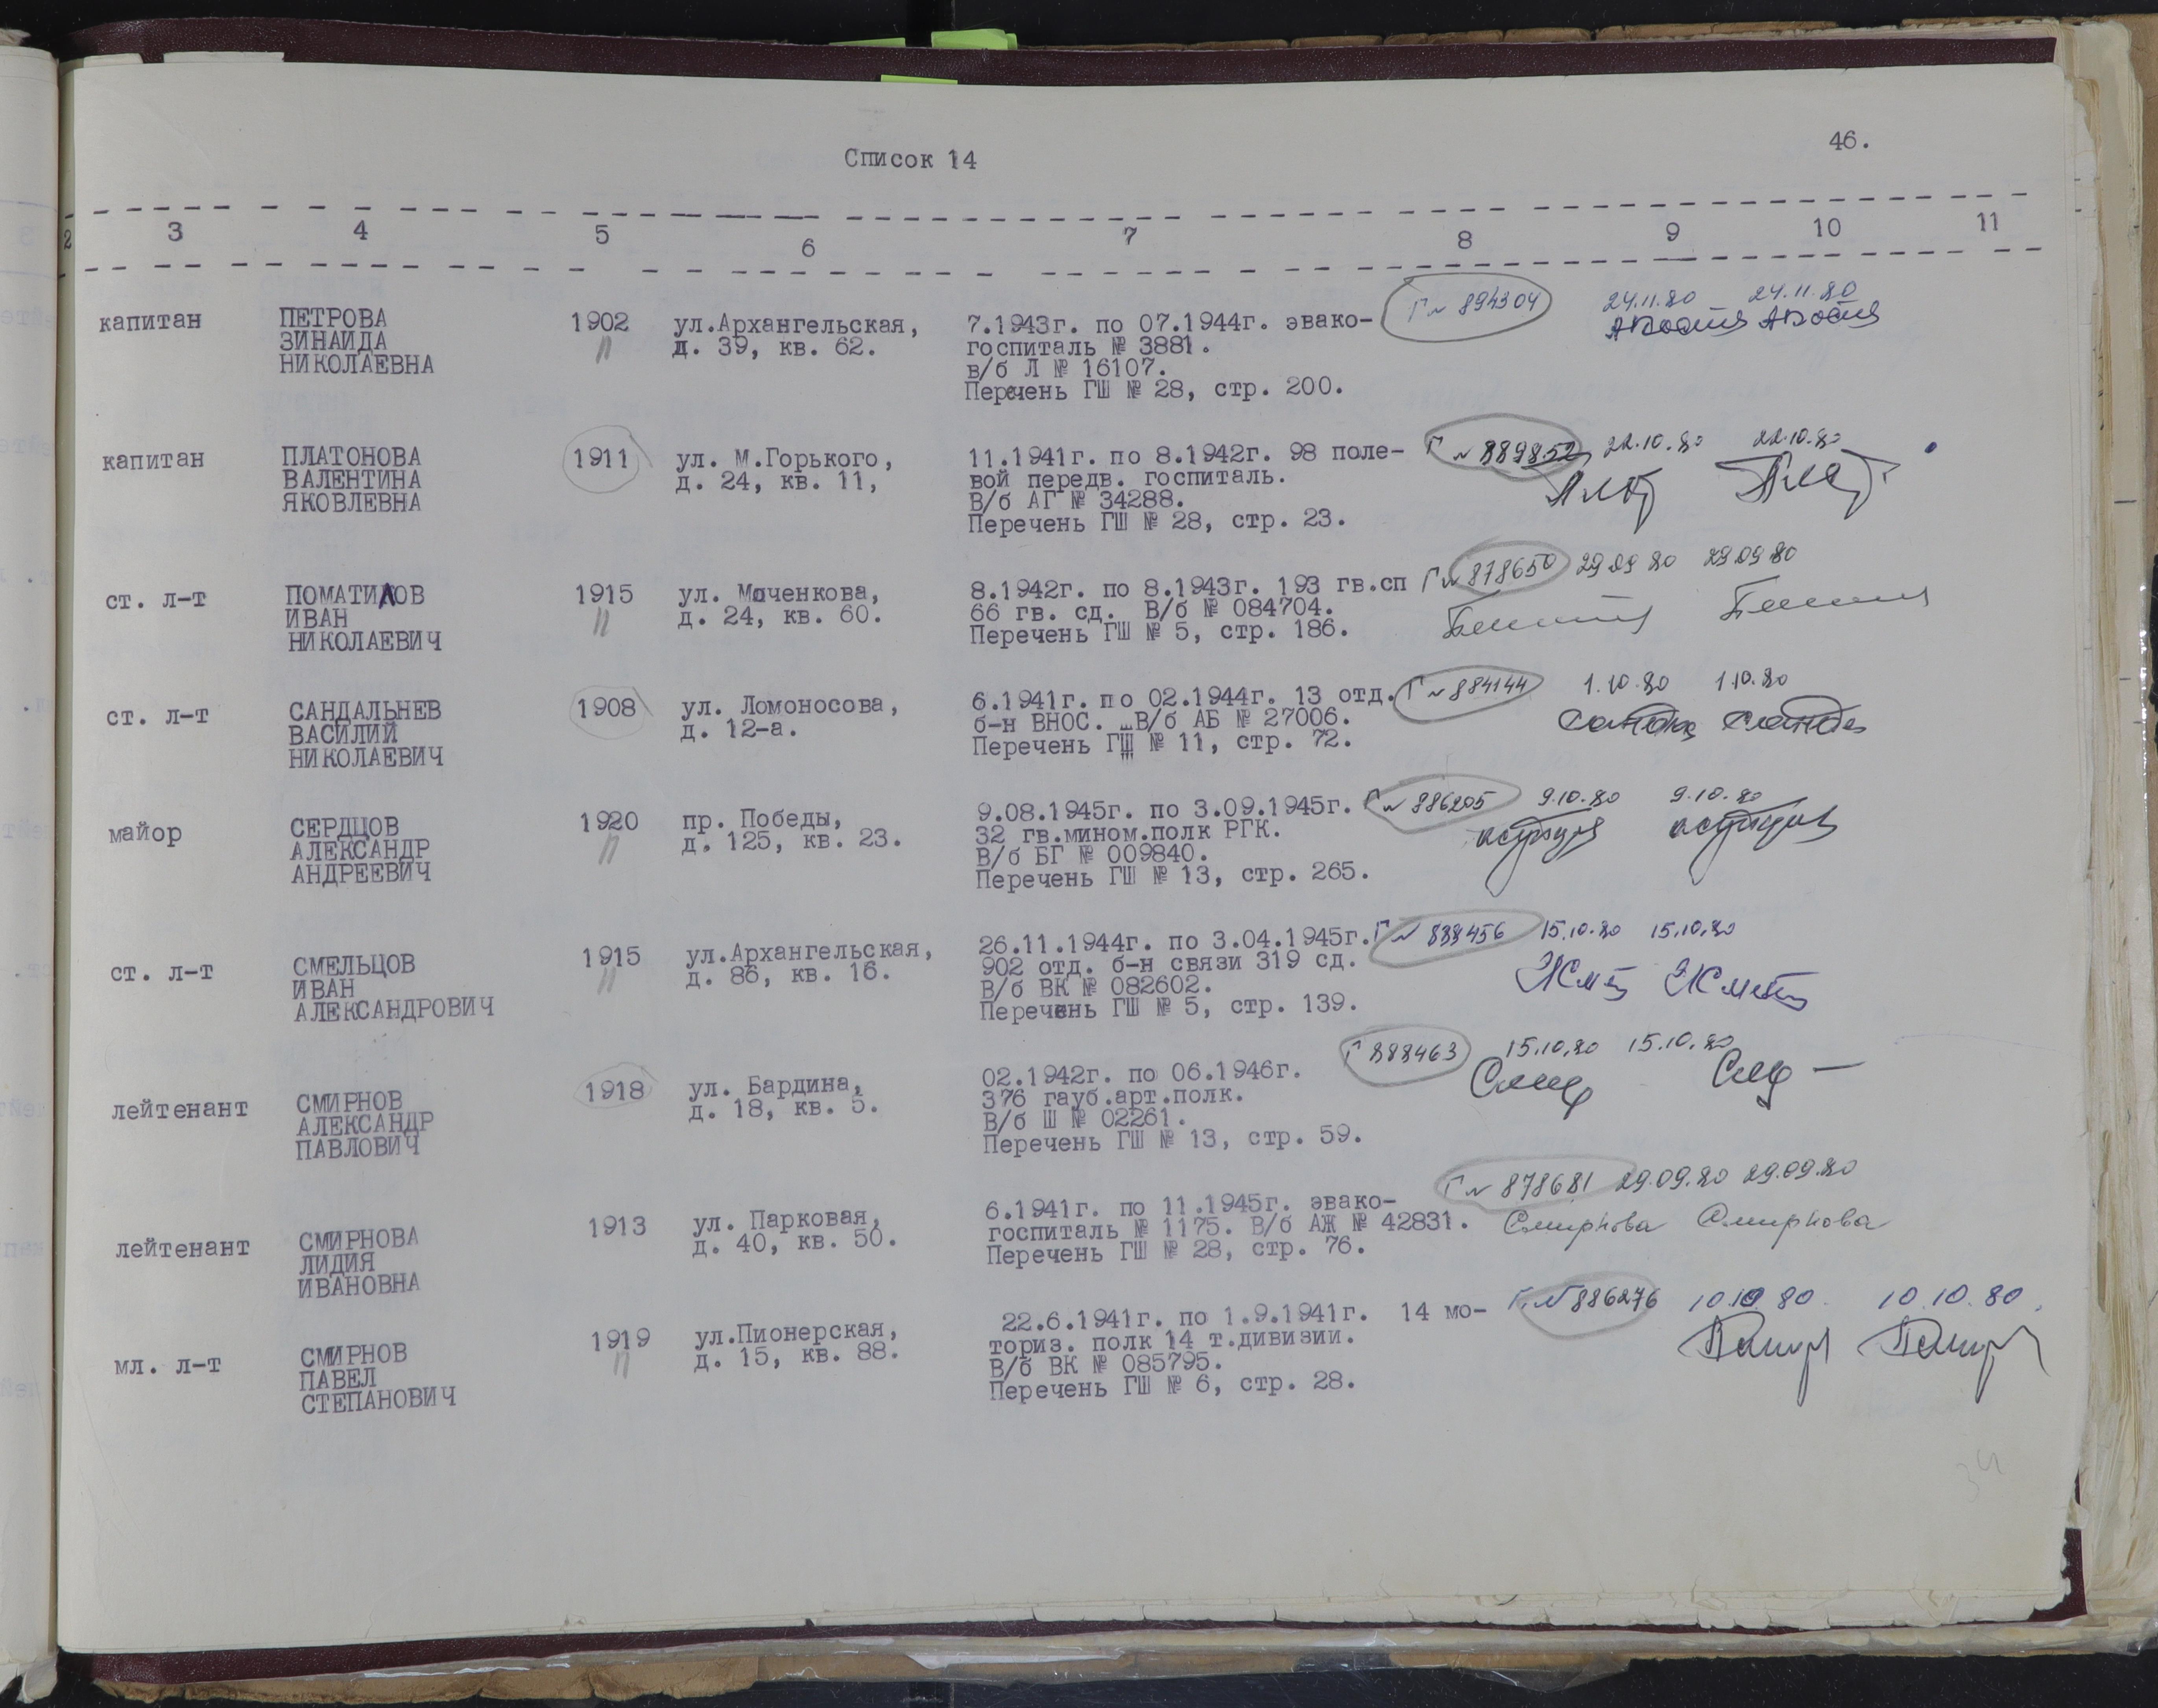 46.
Список 14
2 3 4 5 6 7 8 9 10 11
капитан ПЕТРОВА 1902 ул.Архангельская, 7.1943г. по 07.1944г. эвако- Г № 894304 24.11.80 24.11.80
ЗИНАИДА д. 39, кв. 62. госпиталь № 3881.
НИКОЛАЕВНА в/б Л № 16107.
Перечень ГШ № 28, стр. 200.
капитан ПЛАТОНОВА 1911 ул. М.Горького, 11.1941г. по 8.1942г. 98 поле- Г № 889852 22.10.80 22.10.80
ВАЛЕНТИНА д. 24, кв. 11, вой передв. госпиталь.
ЯКОВЛЕВНА В/б АГ № 34288.
Перечень ГШ № 28, стр. 23.
ст. л-т ПОМАТИЛОВ 1915 ул. Моченкова, 8.1942г. по 8.1943г. 193 гв.сп Г № 878650 29.09.80 29.09.80
ИВАН д. 24, кв. 60. 66 гв. сд. В/б № 084704.
НИКОЛАЕВИЧ Перечень ГШ № 5, стр. 186.
ст. л-т САНДАЛЬНЕВ 1908 ул. Ломоносова, 6.1941г. по 02.1944г. 13 отд. Г № 884144 1.10.80 1.10.80
ВАСИЛИЙ д. 12-а. б-н ВНОС. В/б АБ № 27006.
НИКОЛАЕВИЧ Перечень ГШ № 11, стр. 72.
майор СЕРДЦОВ 1920 пр. Победы, 9.08.1945г. по 3.09.1945г. Г № 886205 9.10.80 9.10.80
АЛЕКСАНДР д. 125, кв. 23. 32 гв.мином.полк РГК.
АНДРЕЕВИЧ В/б БГ № 009840.
Перечень ГШ № 13, стр. 265.
ст. л-т СМЕЛЬЦОВ 1915 ул.Архангельская, 26.11.1944г. по 3.04.1945г. Г № 888456 15.10.80 15.10.80
ИВАН д. 86, кв. 16. 902 отд. б-н связи 319 сд.
АЛЕКСАНДРОВИЧ В/б ВК № 082602.
Перечень ГШ № 5, стр. 139.
лейтенант СМИРНОВ 1918 ул. Бардина, 02.1942г. по 06.1946г. Г 888463 15.10.80 15.10.80
АЛЕКСАНДР д. 18, кв. 5. 376 гауб.арт.полк.
ПАВЛОВИЧ В/б Ш № 02261.
Перечень ГШ № 13, стр. 59.
лейтенант СМИРНОВА 1913 ул. Парковая, 6.1941г. по 11.1945г. эвако- Г № 878681 29.09.80 29.09.80
ЛИДИЯ д. 40, кв. 50. госпиталь № 1175. В/б АЖ № 42831. Смирнова Смирнова
ИВАНОВНА Перечень ГШ № 28, стр. 76.
мл. л-т СМИРНОВ 1919 ул.Пионерская, 22.6.1941г. по 1.9.1941г. 14 мо- Г № 886276 10.10.80 10.10.80
ПАВЕЛ д. 15, кв. 88. ториз. полк 14 т.дивизии.
СТЕПАНОВИЧ В/б ВК № 085795.
Перечень ГШ № 6, стр. 28.